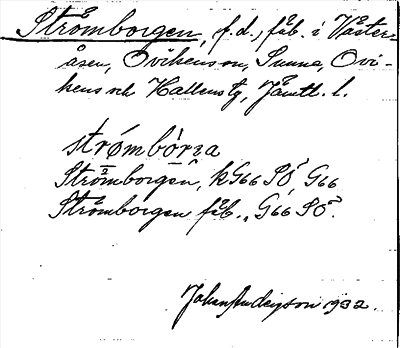 Strömborgen, f.d., fäb. i Väster-
åsen, Ovikenson, Sunne, Ovi-
kens och Hallens tg, Jämtl. l.
strómbòrʒa
Strömborgen, k G66 SÖ, G66
Strömborgen fäb., G66 SÖ.
Johan Anderson 1932.